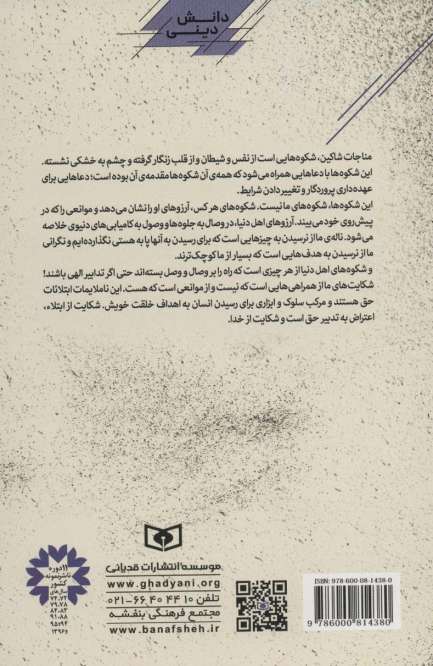 دانش
دینی
مناجات شاکین، شکوه‌هایی است از نفس و شیطان و از قلب زنگار گرفته و چشم به خشکی نشسته.
این شکوه‌ها با دعاهایی همراه می‌شود که همه‌ی آن شکوه‌ها مقدمه‌ی آن بوده است؛ دعاهایی برای
عهده‌داری پروردگار و تغییر دادن شرایط.
این شکوه‌ها، شکوه‌های ما نیست. شکوه‌های هر کس، آرزوهای او را نشان می‌دهد و موانعی را که در
پیش روی خود می‌بیند. آرزوهای اهل دنیا، در وصال به جلوه‌ها و وصول به کامیابی‌های دنیوی خلاصه
می‌شود. ناله‌ی ما از نرسیدن به چیزهایی است که برای رسیدن به آنها پا به هستی نگذارده‌ایم و نگرانی
ما از نرسیدن به هدف‌هایی است که بسیار از ما کوچک‌ترند.
و شکوه‌های اهل دنیا از هر چیزی است که راه را بر وصال و وصل بسته‌اند حتی اگر تدابیر الهی باشند!
شکایت‌های ما از همراهی‌هایی است که نیست و از موانعی است که هست. این ناملایمات ابتلائات
حق هستند و مرکب سلوک و ابزاری برای رسیدن انسان به اهداف خلقت خویش. شکایت از ابتلاء،
اعتراض به تدبیر حق است و شکایت از خدا.
موسسه انتشارات قدیانی
www.ghadyani.org
تلفن ۱۰ ۴۴ ۴۰ ۶۶-۰۲۱
مجتمع فرهنگی بنفشه
www.banafsheh.ir
۱۱ دوره
ناشر نمونه
کشور
سال‌های
۷۳،۷۴
۷۹،۷۸
۸۴،۸۲
۹۱،۸۸
۹۵،۹۴
۱۳۹۶
ISBN: 978-600-08-1438-0
9 786000 814380